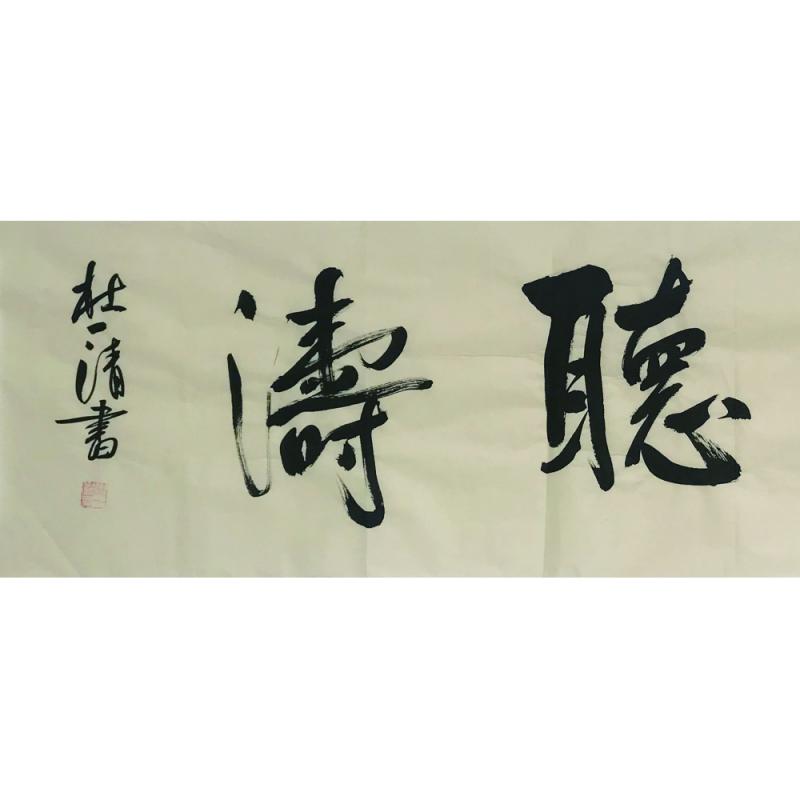 聽濤
杜一清書